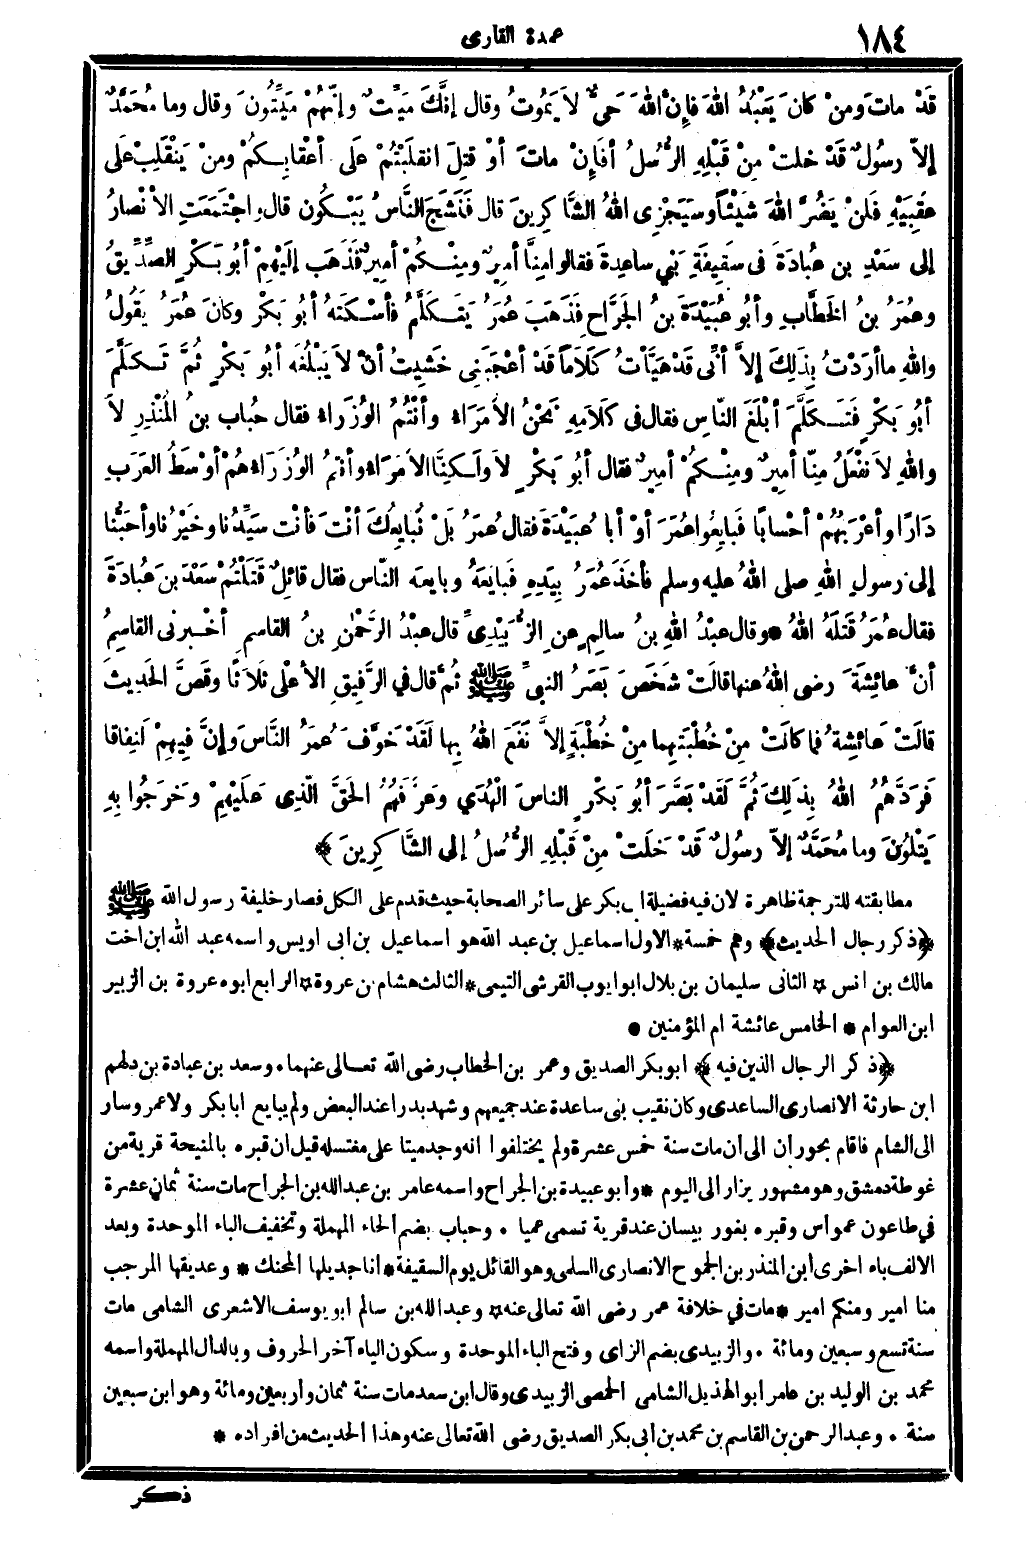 ١٨٤
عمدة القارى
قَدْ ماتَ ومنْ كانَ يَعْبُدُ اللهَ فإِنَّ اللهَ حَىٌّ لاَ يَمُوتُ وقال إنَّكَ مَيِّتٌ وإنَّهُمْ مَيِّتُونَ وقال وما مُحَمَّدٌ
إلاّ رسُولٌ قَدْ خلتْ مِنْ قَبْلِهِ الرُّسُلُ أفَإِنْ ماتَ أوْ قتِلَ انقلَبْتُمْ علَى أعْقابِكُمْ ومنْ يَنْقَلِبْ علَى
عقِبَيْهِ فلَنْ يَضُرَّ اللهَ شَيْئًا وسيَجْزِى اللهُ الشَّاكِرِينَ قال فَنَشَجَ النَّاسُ يَبْكُون قال واجْتَمَعَتِ الأنْصارُ
إلى سَعْدِ بنِ عُبادَةَ فى سقِيفَةِ بَنِي ساعِدةَ فقالوا مِنَّا أمِيرٌ ومِنْكُمْ أمِيرٌ فذَهَبَ إلَيْهِمْ أبُو بَكْرٍ الصدِّيقُ
وعُمَرُ بنُ الخطَّابِ وأبُو عُبَيْدَةَ بنُ الجَرَّاحِ فذَهَبَ عُمَرُ يَتَكَلَّمُ فأسْكَتَهُ أبُو بَكْرٍ وكانَ عُمَرُ يقُولُ
واللهِ ما أرَدْتُ بِذَلِكَ إلاَّ أنِّى قدْ هَيَّأْتُ كَلَامًا قدْ أعْجَبَنِى خَشِيتُ أنْ لاَ يَبْلُغَه أبُو بَكْرٍ ثُمَّ تَكَلَّمَ
أبُو بَكْرٍ فَتَكَلَّمَ أبْلَغَ النَّاسِ فقال فى كلَامِهِ نَحْنُ الأُمَرَاءُ وأنْتُمُ الوُزَرَاءُ فقال حُبابُ بنُ المُنْذِرِ لاَ
واللهِ لاَ نَفْعَلُ مِنّا أمِيرٌ ومِنْكُمْ أمِيرٌ فقال أبُو بَكْرٍ لاَ ولَكِنَّا الأُمَرَاءُ وأنتُمُ الوُزَرَاءُ هُمْ أوْسَطُ العَرَبِ
دَارًا وأعْرَبُهُمْ أحْسابًا فَبايِعُوا عُمَرَ أوْ أبا عُبَيْدَةَ فقال عُمَرُ بَلْ نُبايِعُكَ أنْتَ فأنْتَ سيِّدُنا وخَيْرُنا وأحَبُّنا
إلى رسولِ اللهِ صلى اللهُ عليه وسلم فأخَذَ عُمَرُ بِيَدِهِ فَبايَعَهُ وبايعه النّاس فقال قائلٌ قَتَلْتُمْ سَعْدَ بنَ عُبادَةَ
فقال عُمَرُ قَتَلَهُ اللهُ * وقال عبْدُ اللهِ بنُ سالِمٍ عنِ الزُّبَيْدِىِّ قال عبْدُ الرَّحْمَنِ بنُ القاسِمِ أخْبرنِى القاسِمُ
أنَّ عائِشَةَ رضى اللهُ عنها قالَتْ شَخَصَ بَصَرُ النبىِّ ﷺ ثُمَّ قال في الرَّفِيقِ الأعْلَى ثَلاَثًا وقَصَّ الحَدِيثَ
قالَتْ عائِشةُ فما كانَتْ مِنْ خُطْبَتِهِما مِنْ خُطْبَةٍ إلاَّ نَفَعَ اللهُ بِها لقَدْ خَوَّفَ عُمَرُ النَّاسَ وإنَّ فِيهِمْ لَنِفاقا
فَرَدَّهُمُ اللهُ بِذَلِكَ ثُمَّ لَقَدْ بَصَّرَ أبُو بَكْرٍ الناسَ الهُدَي وعرَّفَهُمُ الحَقَّ الَّذِى عَلَيْهِمْ وخَرَجُوا بِهِ
يَتْلُونَ وما مُحَمَّدٌ إلاّ رسولٌ قَدْ خلَتْ مِنْ قَبْلِهِ الرُّسُلُ إلى الشَّاكِرِينَ ﴾
مطابقته للترجمة ظاهرة لان فيه فضيلة ابى بكر على سائر الصحابة حيث قدم على الكل فصار خليفة رسول الله ﷺ
﴿ ذكر رجال الحديث ﴾ وهم خمسة * الاول اسماعيل بن عبد الله هو اسماعيل بن ابى اويس واسمه عبد الله ابن اخت
مالك بن انس * الثانى سليمان بن بلال ابو ايوب القرشى التيمى * الثالث هشام بن عروة * الرابع ابوه عروة بن الزبير
ابن العوام * الخامس عائشة ام المؤمنين *
﴿ ذكر الرجال الذين فيه ﴾ ابو بكر الصديق وعمر بن الخطاب رضى الله تعالى عنهما . وسعد بن عبادة بن دلهم
ابن حارثة الانصارى الساعدى وكان نقيب بنى ساعدة عند جميعهم وشهد بدرا عند البعض ولم يبايع ابا بكر ولا عمر وسار
الى الشام فاقام بحوران الى ان مات سنة خمس عشرة ولم يختلفوا انه وجد ميتا على مغتسله قيل ان قبره بالمنيحة قرية من
غوطة دمشق وهو مشهور يزار الى اليوم * وأبو عبيدة بن الجراح واسمه عامر بن عبد الله بن الجراح مات سنة ثمان عشرة
في طاعون عمواس وقبره بغور بيسان عند قرية تسمى عميا . وحباب بضم الحاء المهملة وتخفيف الباء الموحدة وبعد
الالف باء اخرى ابن المنذر بن الجموح الانصارى السلمى وهو القائل يوم السقيفة * انا جديلها المحنك * وعديقها المرجب
منا امير ومنكم امير * مات في خلافة عمر رضى الله تعالى عنه * وعبد الله بن سالم ابو يوسف الاشعرى الشامى مات
سنة تسع وسبعين ومائة . والزبيدى بضم الزاى وفتح الباء الموحدة وسكون الياء آخر الحروف وبالدال المهملة واسمه
محمد بن الوليد بن عامر أبو الهذيل الشامى الحمصى الزبيدى وقال ابن سعد مات سنة ثمان وأربعين ومائة وهو ابن سبعين
سنة . وعبد الرحمن بن القاسم بن محمد بن ابى بكر الصديق رضى الله تعالى عنه وهذا الحديث من افراده *
ذكر